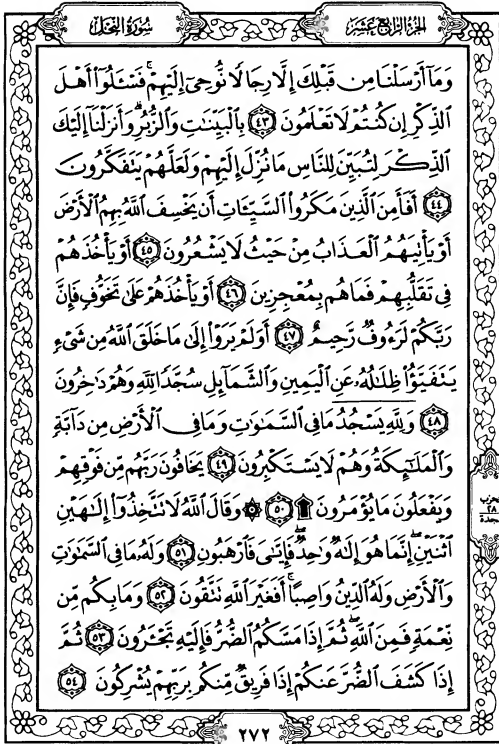 سُورَةُ النَّحْلِ
الجُزْءُ الرَّابِعَ عَشَرَ
وَمَآ أَرْسَلْنَا مِن قَبْلِكَ إِلَّا رِجَالًا نُّوحِىٓ إِلَيْهِمْ ۚ فَسْـَٔلُوٓا۟ أَهْلَ
ٱلذِّكْرِ إِن كُنتُمْ لَا تَعْلَمُونَ ٤٣ بِٱلْبَيِّنَٰتِ وَٱلزُّبُرِ ۗ وَأَنزَلْنَآ إِلَيْكَ
ٱلذِّكْرَ لِتُبَيِّنَ لِلنَّاسِ مَا نُزِّلَ إِلَيْهِمْ وَلَعَلَّهُمْ يَتَفَكَّرُونَ
٤٤ أَفَأَمِنَ ٱلَّذِينَ مَكَرُوا۟ ٱلسَّيِّـَٔاتِ أَن يَخْسِفَ ٱللَّهُ بِهِمُ ٱلْأَرْضَ
أَوْ يَأْتِيَهُمُ ٱلْعَذَابُ مِنْ حَيْثُ لَا يَشْعُرُونَ ٤٥ أَوْ يَأْخُذَهُمْ
فِى تَقَلُّبِهِمْ فَمَا هُم بِمُعْجِزِينَ ٤٦ أَوْ يَأْخُذَهُمْ عَلَىٰ تَخَوُّفٍ فَإِنَّ
رَبَّكُمْ لَرَءُوفٌ رَّحِيمٌ ٤٧ أَوَلَمْ يَرَوْا۟ إِلَىٰ مَا خَلَقَ ٱللَّهُ مِن شَىْءٍ
يَتَفَيَّؤُا۟ ظِلَٰلُهُۥ عَنِ ٱلْيَمِينِ وَٱلشَّمَآئِلِ سُجَّدًا لِّلَّهِ وَهُمْ دَٰخِرُونَ
٤٨ وَلِلَّهِ يَسْجُدُ مَا فِى ٱلسَّمَٰوَٰتِ وَمَا فِى ٱلْأَرْضِ مِن دَآبَّةٍ
وَٱلْمَلَٰٓئِكَةُ وَهُمْ لَا يَسْتَكْبِرُونَ ٤٩ يَخَافُونَ رَبَّهُم مِّن فَوْقِهِمْ
وَيَفْعَلُونَ مَا يُؤْمَرُونَ ۩ ٥٠ ۞ وَقَالَ ٱللَّهُ لَا تَتَّخِذُوٓا۟ إِلَٰهَيْنِ
ٱثْنَيْنِ ۖ إِنَّمَا هُوَ إِلَٰهٌ وَٰحِدٌ ۖ فَإِيَّٰىَ فَٱرْهَبُونِ ٥١ وَلَهُۥ مَا فِى ٱلسَّمَٰوَٰتِ
وَٱلْأَرْضِ وَلَهُ ٱلدِّينُ وَاصِبًا ۚ أَفَغَيْرَ ٱللَّهِ تَتَّقُونَ ٥٢ وَمَا بِكُم مِّن
نِّعْمَةٍ فَمِنَ ٱللَّهِ ۖ ثُمَّ إِذَا مَسَّكُمُ ٱلضُّرُّ فَإِلَيْهِ تَجْـَٔرُونَ ٥٣ ثُمَّ
إِذَا كَشَفَ ٱلضُّرَّ عَنكُمْ إِذَا فَرِيقٌ مِّنكُم بِرَبِّهِمْ يُشْرِكُونَ ٥٤
٢٧٢